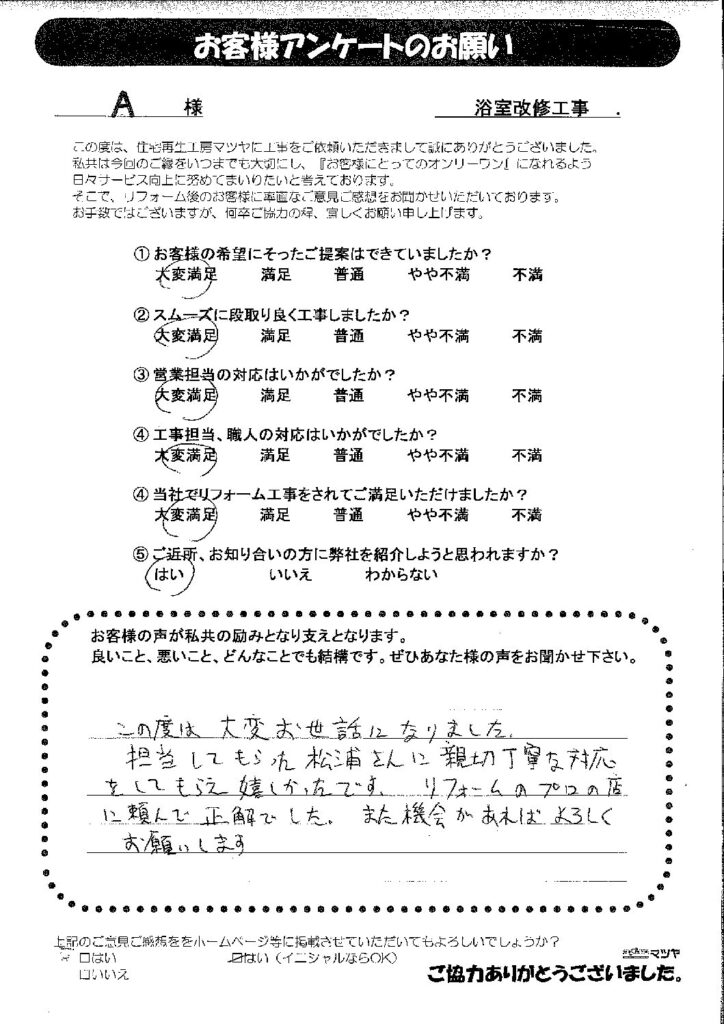 お客様アンケートのお願い
A 様 浴室改修工事 .
この度は、住宅再生工房マツヤに工事をご依頼いただきまして誠にありがとうございました。
私共は今回のご縁をいつまでも大切にし、『お客様にとってのオンリーワン』になれるよう
日々サービス向上に努めてまいりたいと考えております。
そこで、リフォーム後のお客様に率直なご意見ご感想をお聞かせいただいております。
お手数ではございますが、何卒ご協力の程、宜しくお願い申し上げます。
① お客様の希望にそったご提案はできていましたか？
大変満足 満足 普通 やや不満 不満
② スムーズに段取り良く工事しましたか？
大変満足 満足 普通 やや不満 不満
③ 営業担当の対応はいかがでしたか？
大変満足 満足 普通 やや不満 不満
④ 工事担当、職人の対応はいかがでしたか？
大変満足 満足 普通 やや不満 不満
④ 当社でリフォーム工事をされてご満足いただけましたか？
大変満足 満足 普通 やや不満 不満
⑤ ご近所、お知り合いの方に弊社を紹介しようと思われますか？
はい いいえ わからない
お客様の声が私共の励みとなり支えとなります。
良いこと、悪いこと、どんなことでも結構です。ぜひあなた様の声をお聞かせ下さい。
この度は大変お世話になりました.
担当してもらった松浦さんに親切丁寧な対応
をしてもらえ嬉しかったです. リフォームのプロの店
に頼んで正解でした. また機会があればよろしく
お願いします
上記のご意見ご感想ををホームページ等に掲載させていただいてもよろしいでしょうか？
□はい ☑はい（イニシャルならOK）
□いいえ
マツヤ
ご協力ありがとうございました。